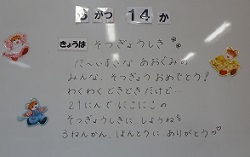 がつ 14 か
きょうは そつぎょうしき
だ〜いすきな あおぐみの
みんな、そつぎょう おめでとう!
わくわく どきどき だけど…
21にんで にこにこの
そつぎょうしきに しようね
3ねんかん、ほんとうに ありがとう